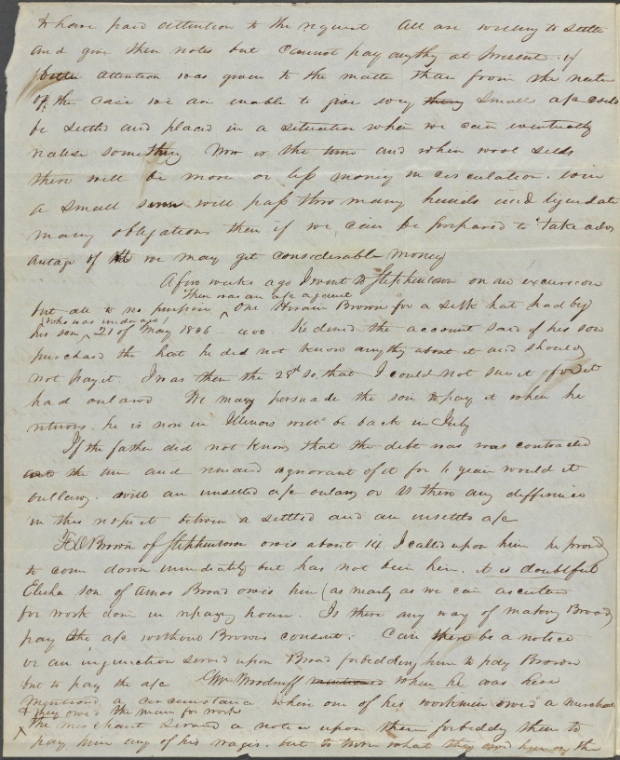 to have paid attention to the request All are willing to settle
and give their notes but cannot pay anything at present. if
attention was given to the matter than from the nature
of the case we are unable to give every small a/c could
be settled and placed in a situation when we can eventually
realise something Now is the time and when wool sells
there will be more or less money in circulation.
a small sum will pass thro many hands and liquidate
many obligations then if we can be prepared to take adv
antage of it we may get considerable money
A few weeks ago I went to Stephentown on an excursion
but all to no purpose There was an a/c against One Hiram Brown for a silk hat had by
his son (who was under age) 21 of May 1836 4.00. He denied the account said if his son
purchased the hat he did not know anything about it and should
not pay it. I was there the 28th so that I could not sue it for it
had outlawed We may persuade the son to pay it when he
returns. he is now in Illinois will be back in July
If the father did not know that the debt was was contracted
and remained ignorant of it for 6 years would it
outlaw. will an unsettled a/c outlaw or is there any difference
in this respect between a settled and an unsettled a/c
H.O. Brown of Stephentown owes about 14. I called upon him he promised
to come down immediately but has not been here. it is doubtful
Elisha son of Amos Broad owes him (as nearly as we can ascertain
for work done in repairing house. Is there any way of making Broad
pay the a/c without Browns consent. Can there be a notice
or an injunction served upon Broad forbidding him to pay Brown
but to pay the a/c Wm Woodruff mentioned when he was here
mentioned a circumstance where one of his workmen owed a merchant
& they owed the man for work
the merchant served a notice upon them forbiddg them to
pay him any of his wages. but to what they owed him on the